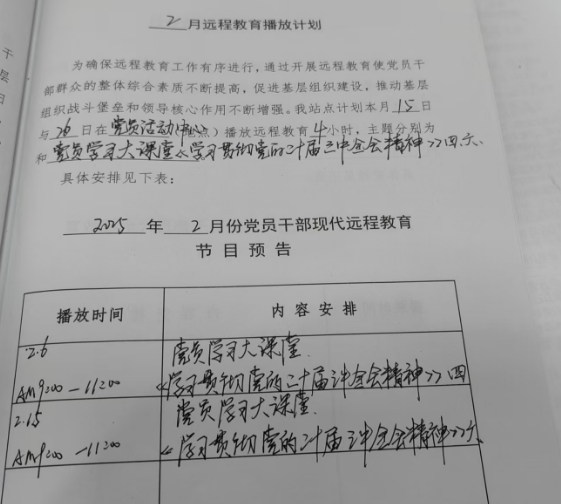 2月远程教育播放计划
为确保远程教育工作有序进行，通过开展远程教育使党员干
部群众的整体综合素质不断提高，促进基层组织建设，推动基层
组织战斗堡垒和领导核心作用不断增强。我站点计划本月15日
与26日在党员活动中心（地点）播放远程教育4小时，主题分别为
和党员学习大课堂《学习贯彻党的二十届三中全会精神》四、六、
具体安排见下表：
2025年2月份党员干部现代远程教育
节目预告
播放时间 内容安排
2.6 党员学习大课堂.
AM9:00-11:00 《学习贯彻党的二十届三中全会精神》四
2.15 党员学习大课堂.
AM9:00-11:00 《学习贯彻党的二十届三中全会精神》六